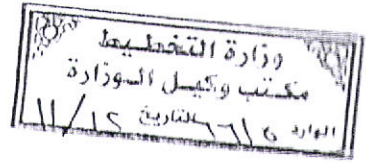 وزارة التخطيط
مكتب وكيل الوزارة
الوارد ٦٦١٥ التاريخ ١١/١٢